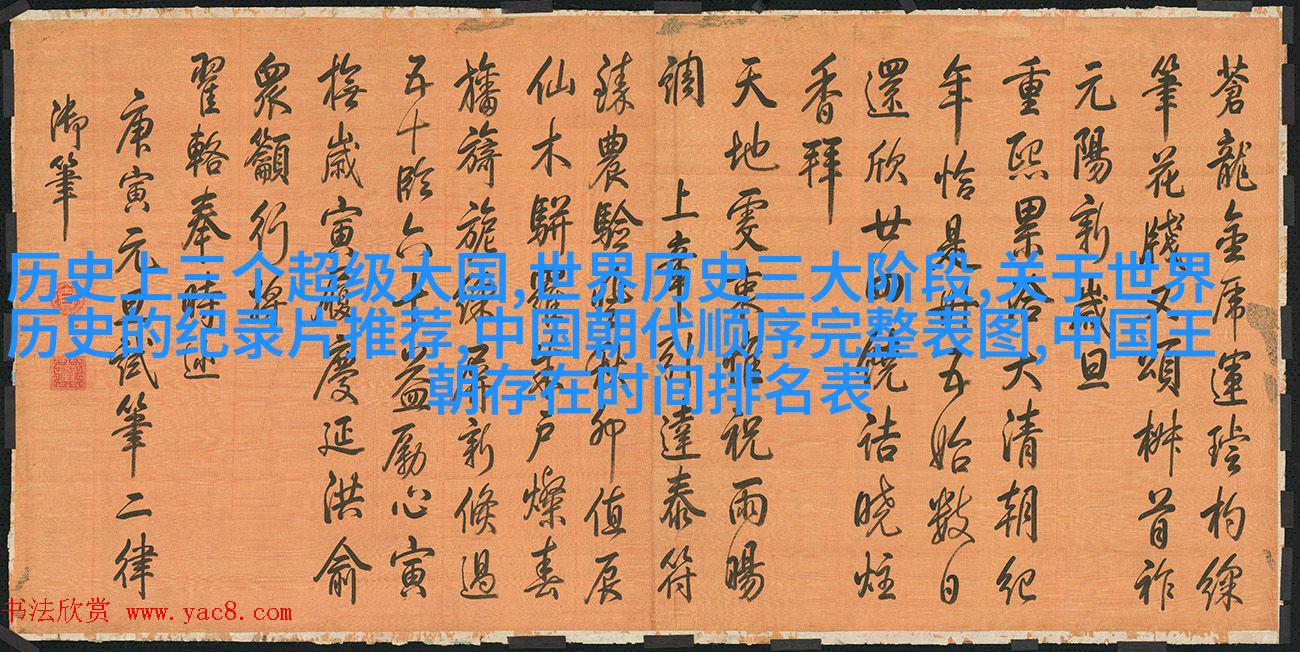 蒼龍金虎運璿杓綵
筆花牋又頌椒首祚
元陽新歲旦
重熙累洽大清朝紀
年恰是卅五始數日
還欣廿四饒詰曉炷
香拜
天地雯祝雨暘
調 上辛達泰符
臻農驗卯值辰
仙木駢户燦春
旛旖旎綵屏新倏過
五十臨六十益勵心寅
撫歲寅慶延洪俞
眾籲行將
翟輅奉時巡
庚寅元旦試筆二律
御筆
历史上三个超级大国,世界历史三大阶段,关于世界
历史的纪录片推荐,中国朝代顺序完整表图,中国王
朝存在时间排名表
书法欣赏 www.yac8.com